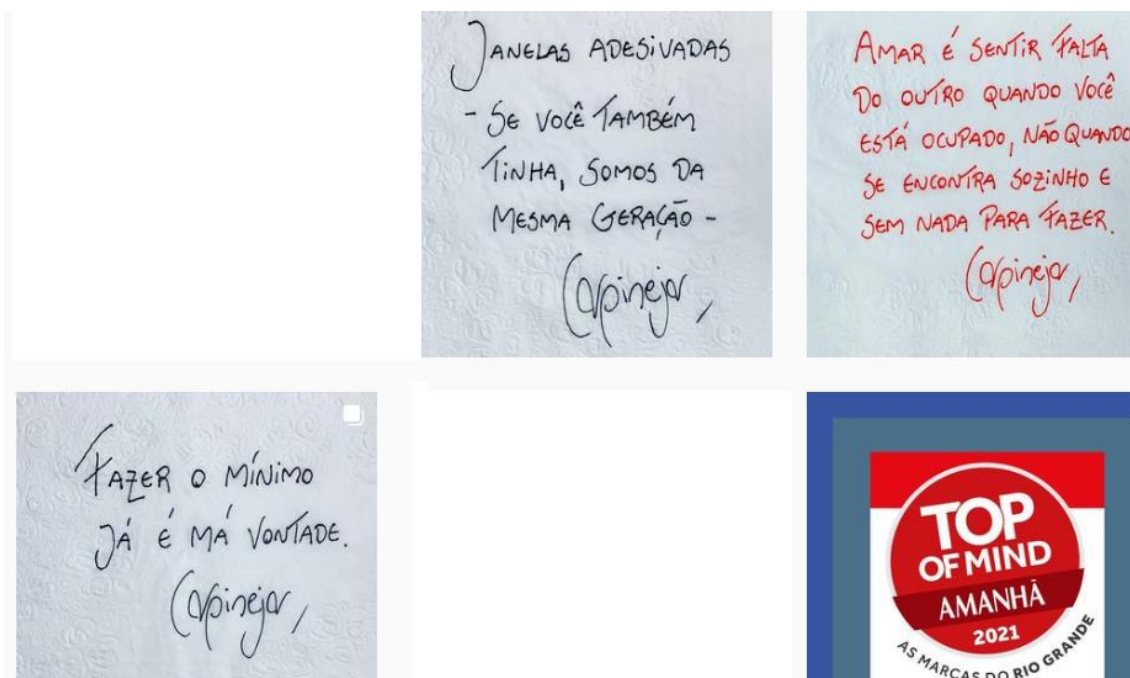 JANELAS ADESIVADAS
- SE VOCÊ TAMBÉM
TINHA, SOMOS DA
MESMA GERAÇÃO -
Carpinejar,
AMAR É SENTIR FALTA
DO OUTRO QUANDO VOCÊ
ESTÁ OCUPADO, NÃO QUANDO
SE ENCONTRA SOZINHO E
SEM NADA PARA FAZER.
Carpinejar,
FAZER O MÍNIMO
JÁ É MÁ VONTADE.
Carpinejar,
TOP
OF MIND
AMANHÃ
2021
AS MARCAS DO RIO GRANDE